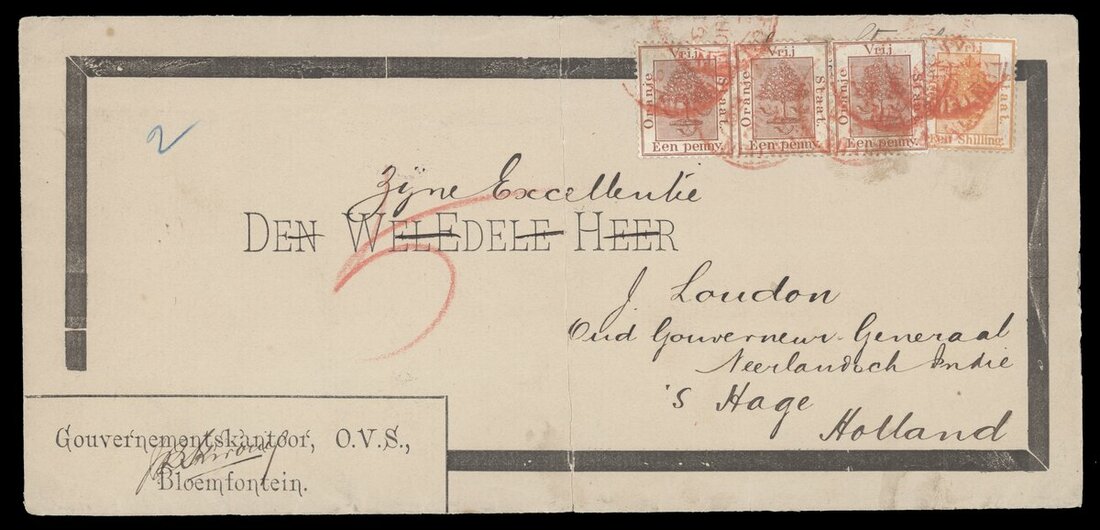 2
Vrij
Oranje
Staat.
Een penny.
Vrij
Oranje
Staat.
Een penny.
Vrij
Oranje
Staat.
Een penny.
Vrij
Staat.
Een Shilling.
Zijne Excellentie
DEN WELEDELE HEER
5
J Loudon
Oud Gouverneur-Generaal
Neerlandsch Indie
's Hage
Holland
Gouvernementskantoor, O.V.S.,
Bloemfontein.